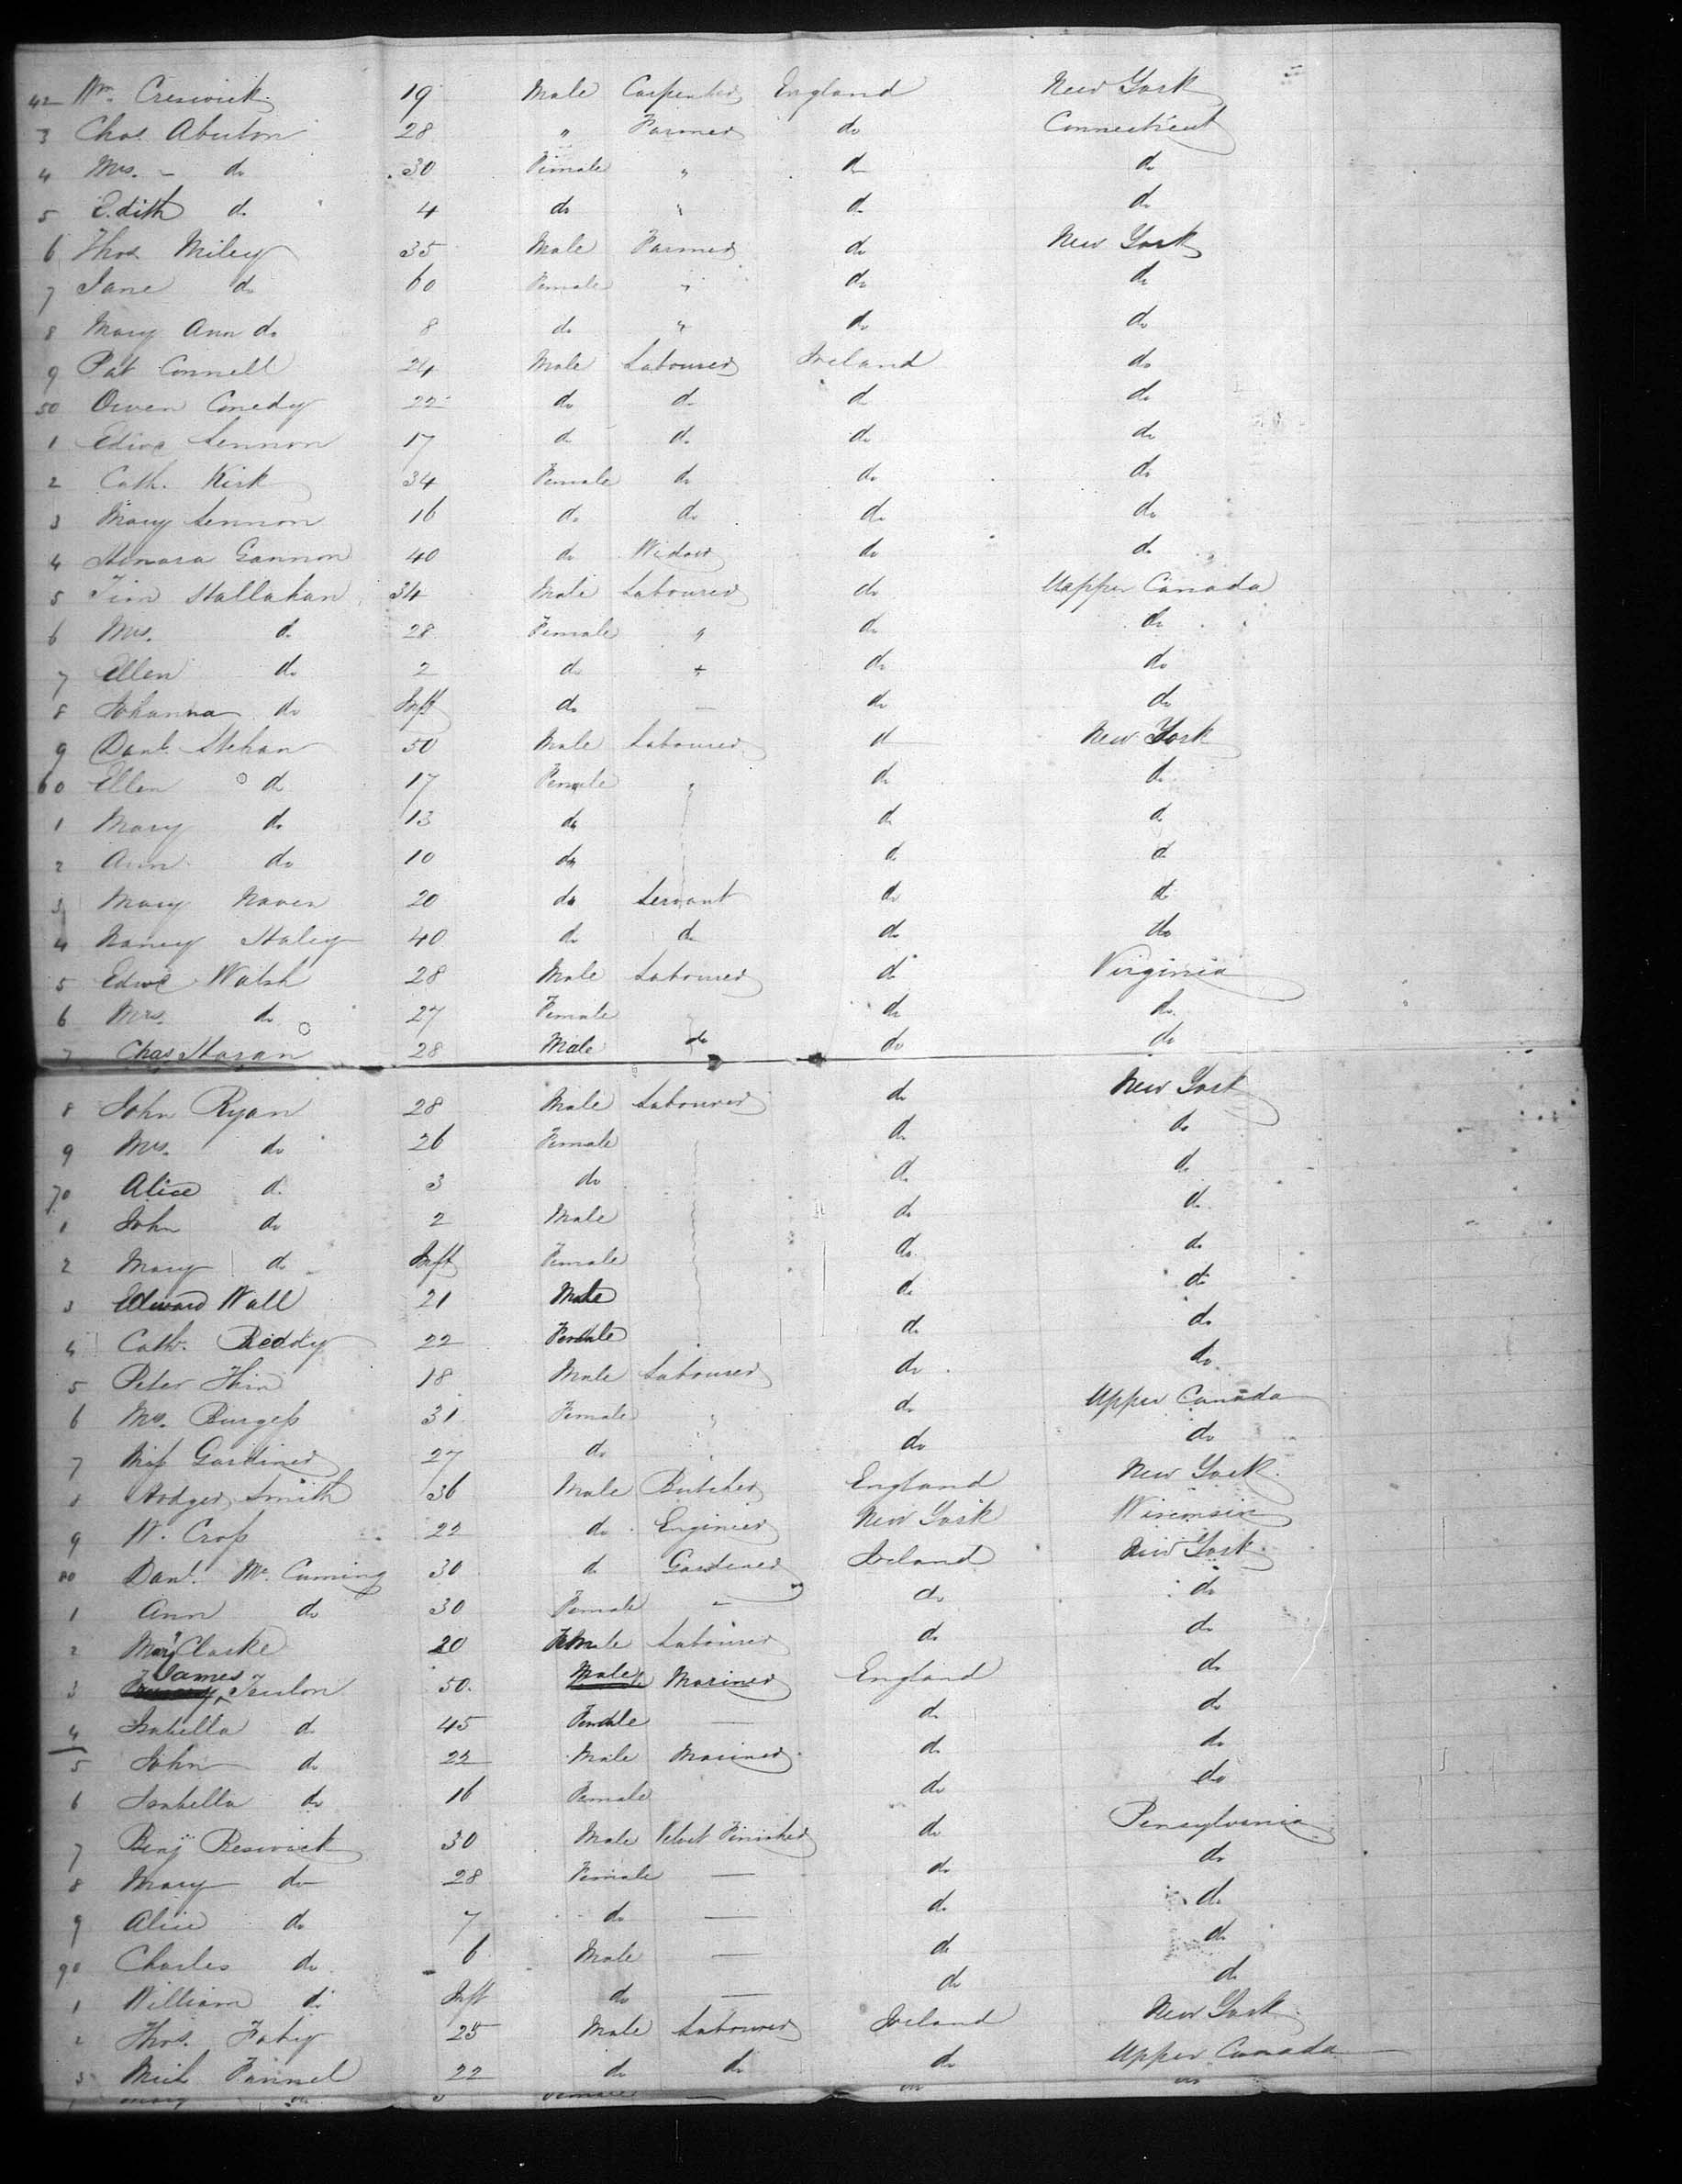 42 Wm. Creswick 19 Male Carpenter England New York
3 Chas. Abutton 28 " Farmer do Connecticut
4 Mrs. - do 30 Female " do do
5 Edith do 4 do " do do
6 Thos. Miley 35 Male Farmer do New York
7 Jane do 60 Female " do do
8 Mary Ann do 8 do " do do
9 Pat Connell 24 Male Labourer Ireland do
50 Owen Conedy 22 do do do do
1 Edwd Lennon 17 do do do do
2 Cath. Kirk 34 Female do do do
3 Mary Lennon 16 do do do do
4 Honora Gannon 40 do Widow do do
5 Tim Hallahan 34 Male Labourer do Uapper Canada
6 Mrs. do 28 Female " do do
7 Ellen do 2 do " do do
8 Johanna do Inft do — do do
9 Danl. Mehan 50 Male Labourer do New York
60 Ellen do 17 Female " do do
1 Mary do 13 do do do
2 Ann do 10 do do do
3 Mary Naven 20 do Servant do do
4 Nancy Haley 40 do do do do
5 Edwd Walsh 28 Male Labourer do Virginia
6 Mrs. do 27 Female do do
7 Chas Horan 28 Male do do do
8 John Ryan 28 Male Labourer do New York
9 Mrs. do 26 Female do do
70 Alice do 3 do do do
1 John do 2 Male do do
2 Mary do Inft Female do do
3 Edward Wall 21 Male do do
4 Cath. Reddy 22 Female do do
5 Peter 18 Male Labourer do do
6 Mrs. Burgess 31 Female " do Upper Canada
7 Miss Gardiner 27 do do do
8 Rodger Smith 36 Male Butcher England New York
9 W. Cross 22 do Engineer New York Wisconsin
80 Danl. Mc Cuming 30 do Gardener Ireland New York
1 Ann do 30 Female — do do
2 Mary Clarke 20 Female Labourer do do
3 James Teulon 50 Male Mariner England do
4 Isabella do 45 Female — do do
5 John do 22 Male Mariner do do
6 Isabella do 16 Female do do
7 Benj Beswick 30 Male Velvet Finisher do Pensylvania
8 Mary do 28 Female — do do
9 Alice do 7 do — do do
90 Charles do 6 Male — do do
1 William do Inft do — do do
2 Thos. Fahy 25 Male Labourer Ireland New York
3 Mich Fannel 22 do do do Upper Canada